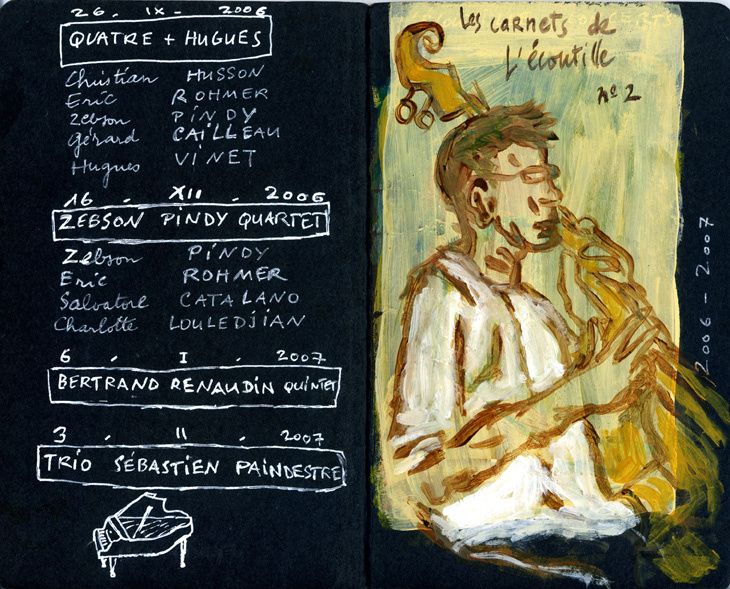 26. IX - 2006
QUATRE + HUGUES
Christian HUSSON
Eric ROHMER
Zebson PINDY
Gérard CAILLEAU
Hugues VINET
16 . XII . 2006
ZEBSON PINDY QUARTET
Zebson PINDY
Eric ROHMER
Salvatore CATALANO
Charlotte LOULEDJIAN
6 . I . 2007
BERTRAND RENAUDIN QUINTET
3 . II . 2007
TRIO SÉBASTIEN PAINDESTRE
Les carnets de
l'écoutille
n° 2
2006 - 2007